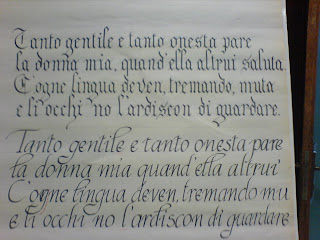 Tanto gentile e tanto onesta pare
la donna mia, quand'ella altrui saluta
C'ogne lingua deven, tremando, muta
e li occhi no l'ardiscon di guardare.
Tanto gentile e tanto onesta pare
la donna mia quand'ella altrui
C'ogne lingua deven, tremando mu
e li occhi no l'ardiscon di guardare